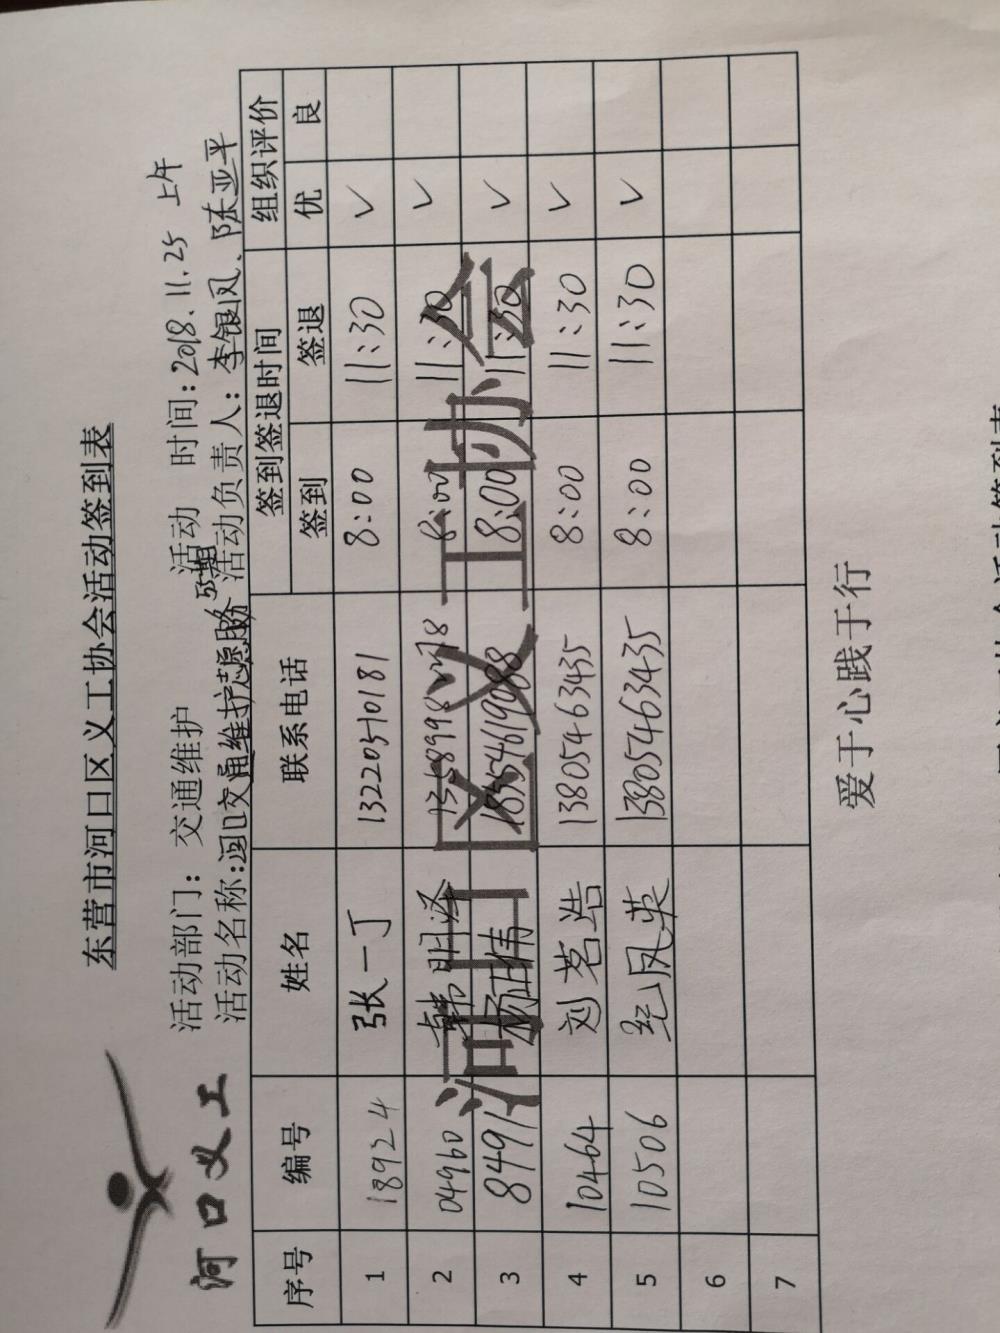 东营市河口区义工协会活动签到表
河口义工
活动部门：交通维护 活动 时间：2018.11.25 上午
活动名称:河口交通维护志愿服务 活动负责人：李银凤、陈亚平
序号 编号 姓名 联系电话 签到签退时间 组织评价
签到 签退 优 良
1 18924 张一丁 13220540181 8:00 11:30 ✓
2 04960 韩明泽 8:00 11:30 ✓
3 8491 杨伟 18554619088 8:00 11:30 ✓
4 10464 刘茗浩 13805463435 8:00 11:30 ✓
5 10506 纪凤英 13805463435 8:00 11:30 ✓
6
7
河口区义工协会
爱于心践于行